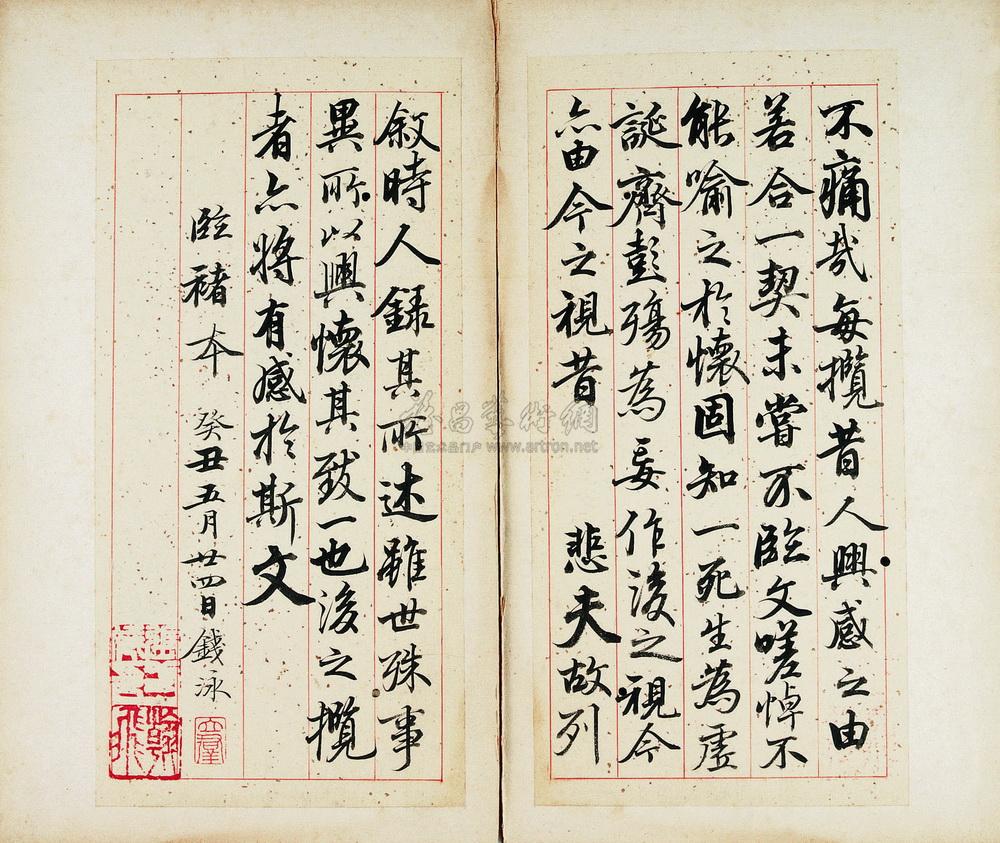 不痛哉每攬昔人興感之由
若合一契未嘗不臨文嗟悼不
能喻之於懷固知一死生為虛
誕齊彭殤為妄作後之視今
亦由今之視昔 悲夫故列
叙時人錄其所述雖世殊事
異所以興懷其致一也後之攬
者亦將有感於斯文
臨褚本 癸丑五月廿四日錢泳
www.artron.net